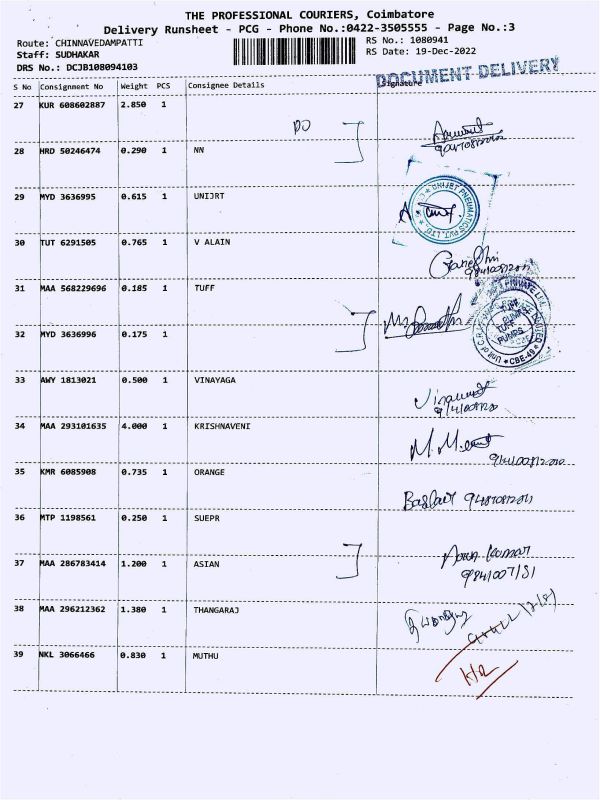 THE PROFESSIONAL COURIERS, Coimbatore
Delivery Runsheet - PCG - Phone No.:0422-3505555 - Page No.:3
Route: CHINNAVEDAMPATTI RS No.: 1080941
Staff: SUDHAKAR RS Date: 19-Dec-2022
DRS No.: DCJB108094103
DOCUMENT DELIVERY
S No Consignment No Weight PCS Consignee Details Signature
27 KUR 608602887 2.850 1
DO
28 HRD 50246474 0.290 1 NN
29 MYD 3636995 0.615 1 UNIJRT
UNIJET PNEUMATICS PVT. LTD.
30 TUT 6291505 0.765 1 V ALAIN
31 MAA 568229696 0.185 1 TUFF
TUFF PUMPS
CBE-49
32 MYD 3636996 0.175 1
33 AWY 1813021 0.500 1 VINAYAGA
34 MAA 293101635 4.000 1 KRISHNAVENI
35 KMR 6085908 0.735 1 ORANGE
36 MTP 1198561 0.250 1 SUEPR
37 MAA 286783414 1.200 1 ASIAN
Arun Kumar
38 MAA 296212362 1.380 1 THANGARAJ
39 NKL 3066466 0.830 1 MUTHU